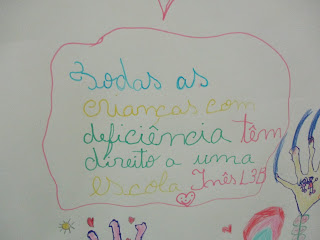 Todas as
crianças com
deficiência têm
direito a uma
escola Inês L 3B